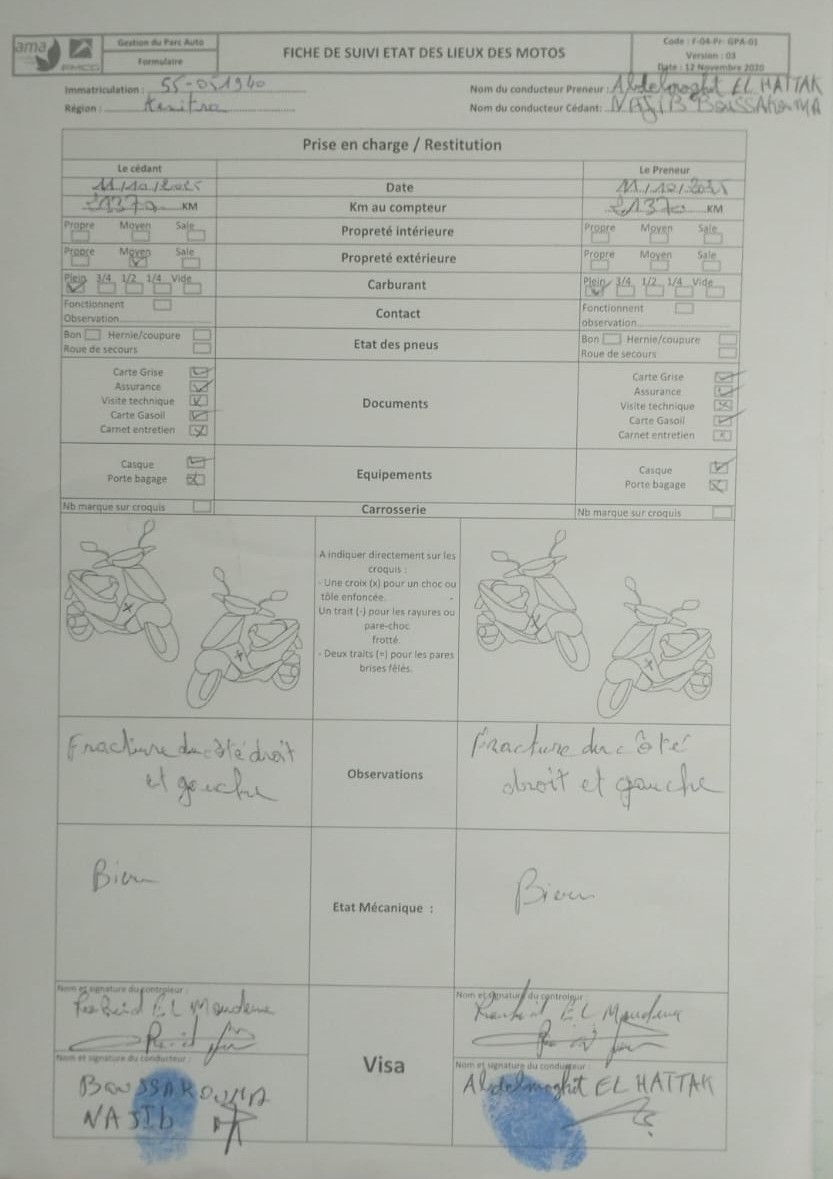 ama
FMCG
Gestion du Parc Auto
Formulaire
FICHE DE SUIVI ETAT DES LIEUX DES MOTOS
Code : F-04-Pr- GPA-01
Version : 03
Date : 12 Novembre 2020
Immatriculation : 55-051940
Région : Kenitra
Nom du conducteur Preneur : Abdelmoghit EL HATTAK
Nom du conducteur Cédant: NAJIB BOUSSAKOUMA
Prise en charge / Restitution
Le cédant Le Preneur
11/10/2025 Date 11/10/2025
21370 KM Km au compteur 21370 KM
Propre Moyen Sale Propreté intérieure Propre Moyen Sale
Propre Moyen Sale Propreté extérieure Propre Moyen Sale
Plein 3/4 1/2 1/4 Vide Carburant Plein 3/4 1/2 1/4 Vide
Fonctionnent Contact Fonctionnent
Observation observation
Bon Hernie/coupure Etat des pneus Bon Hernie/coupure
Roue de secours Roue de secours
Carte Grise Carte Grise
Assurance Assurance
Visite technique Documents Visite technique
Carte Gasoil Carte Gasoil
Carnet entretien Carnet entretien
Casque Equipements Casque
Porte bagage Porte bagage
Nb marque sur croquis Carrosserie Nb marque sur croquis
A indiquer directement sur les
croquis :
- Une croix (x) pour un choc ou
tôle enfoncée. -
Un trait (-) pour les rayures ou
pare-choc
frotté.
- Deux traits (=) pour les pares
brises fêlés.
Fracture du côté droit
et gauche
Observations
Fracture du côté
droit et gauche
Bien Etat Mécanique : Bien
Nom et signature du controleur :
Rachid EL
Nom et signature du controleur
Rachid EL
Visa
Nom et signature du conducteur :
BOUSSAKOUMA
NAJIb
Nom et signature du conducteur :
Abdelmoghit EL HATTAK